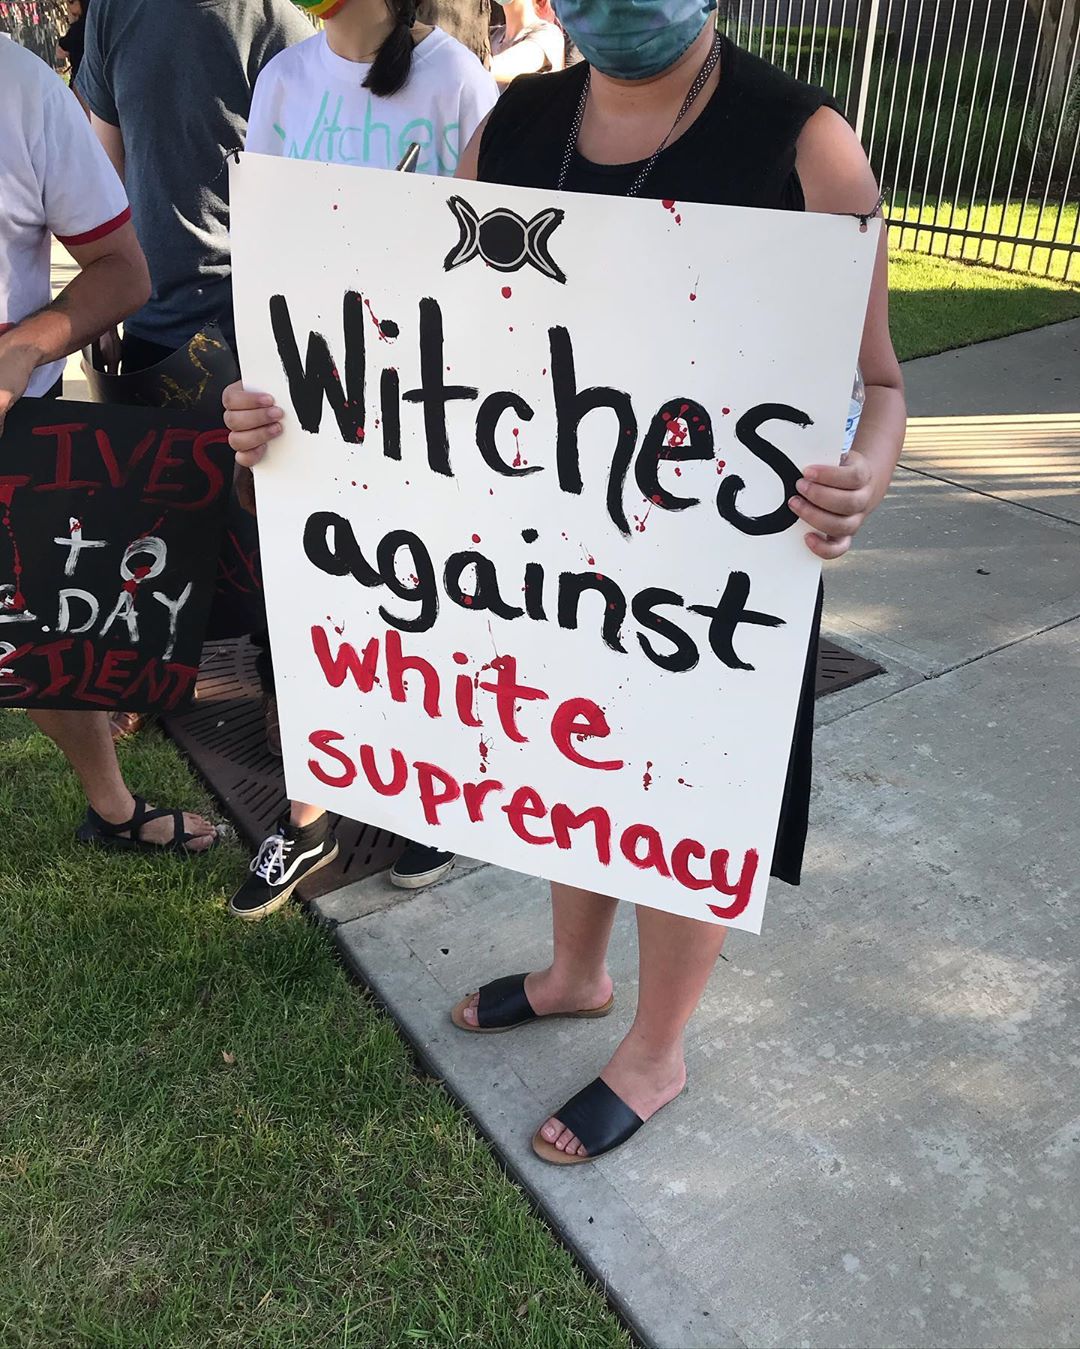 Witches
Witches
against
white
supremacy
LIVES
TO
DAY
SILENT